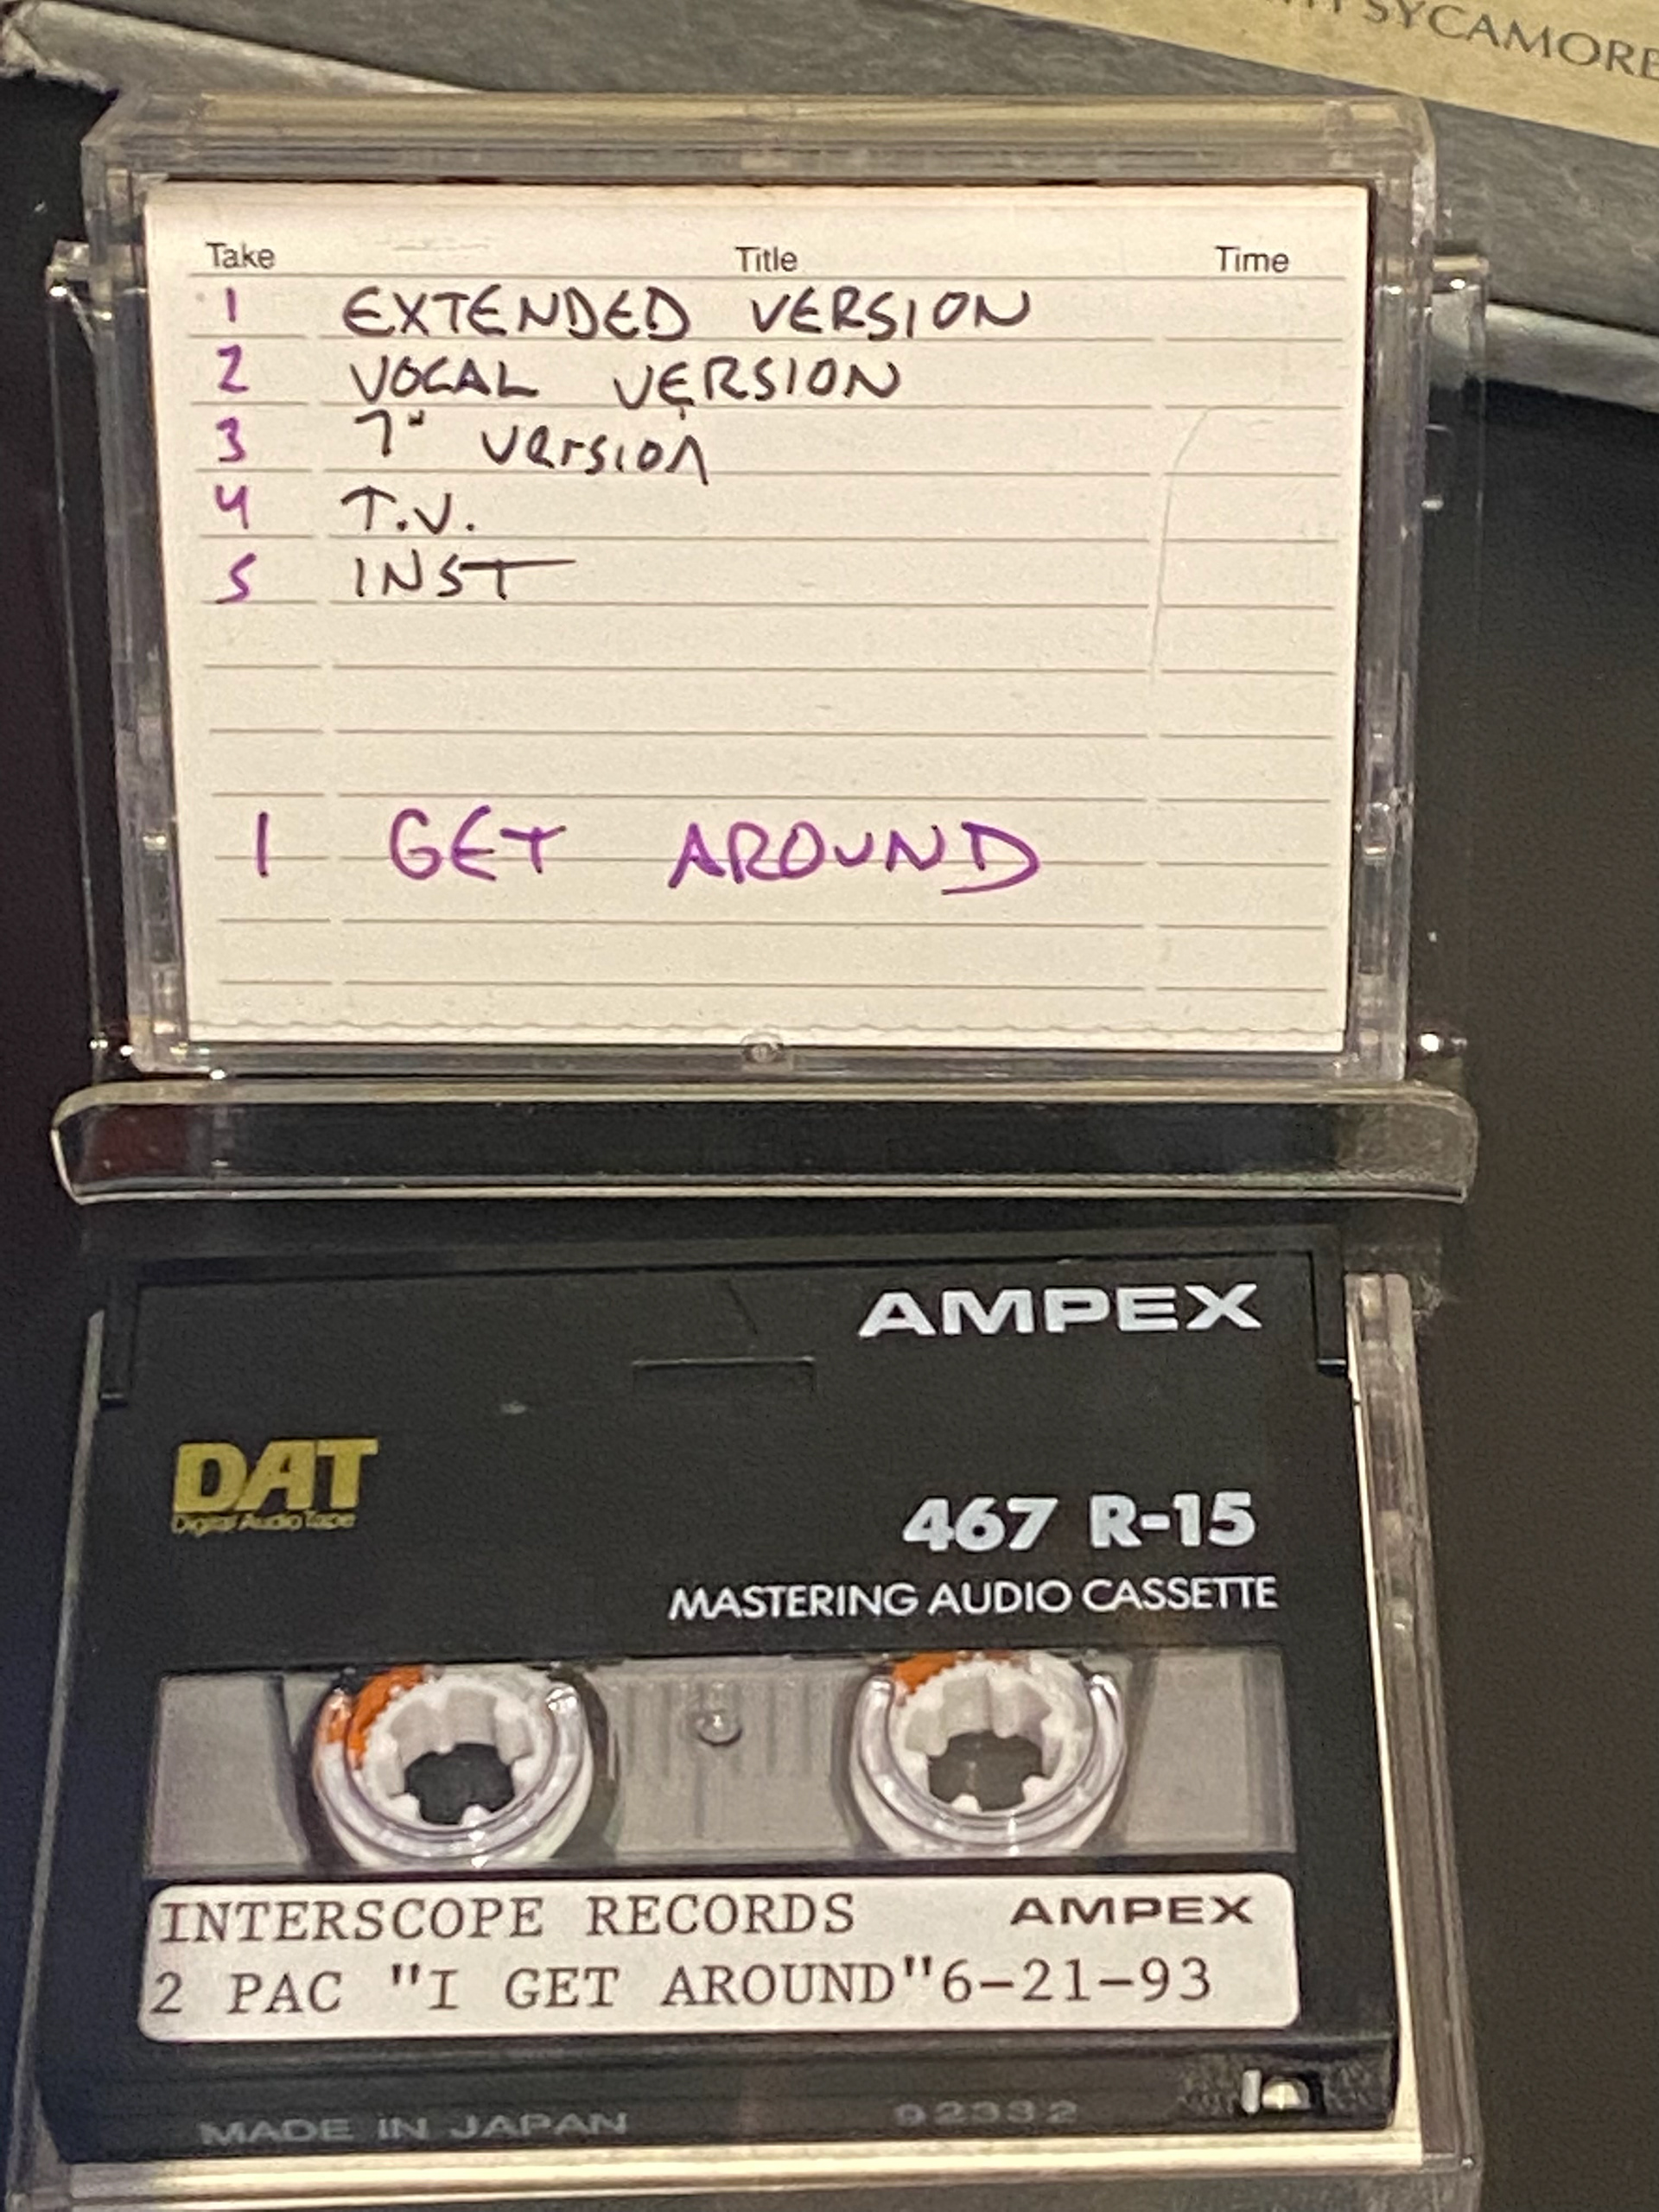 SYCAMORE
Take Title Time
1 EXTENDED VERSION
2 VOCAL VERSION
3 7" version
4 T.V.
5 INST
I GET AROUND
AMPEX
DAT
Digital Audio Tape
467 R-15
MASTERING AUDIO CASSETTE
INTERSCOPE RECORDS AMPEX
2 PAC "I GET AROUND" 6-21-93
MADE IN JAPAN 92332